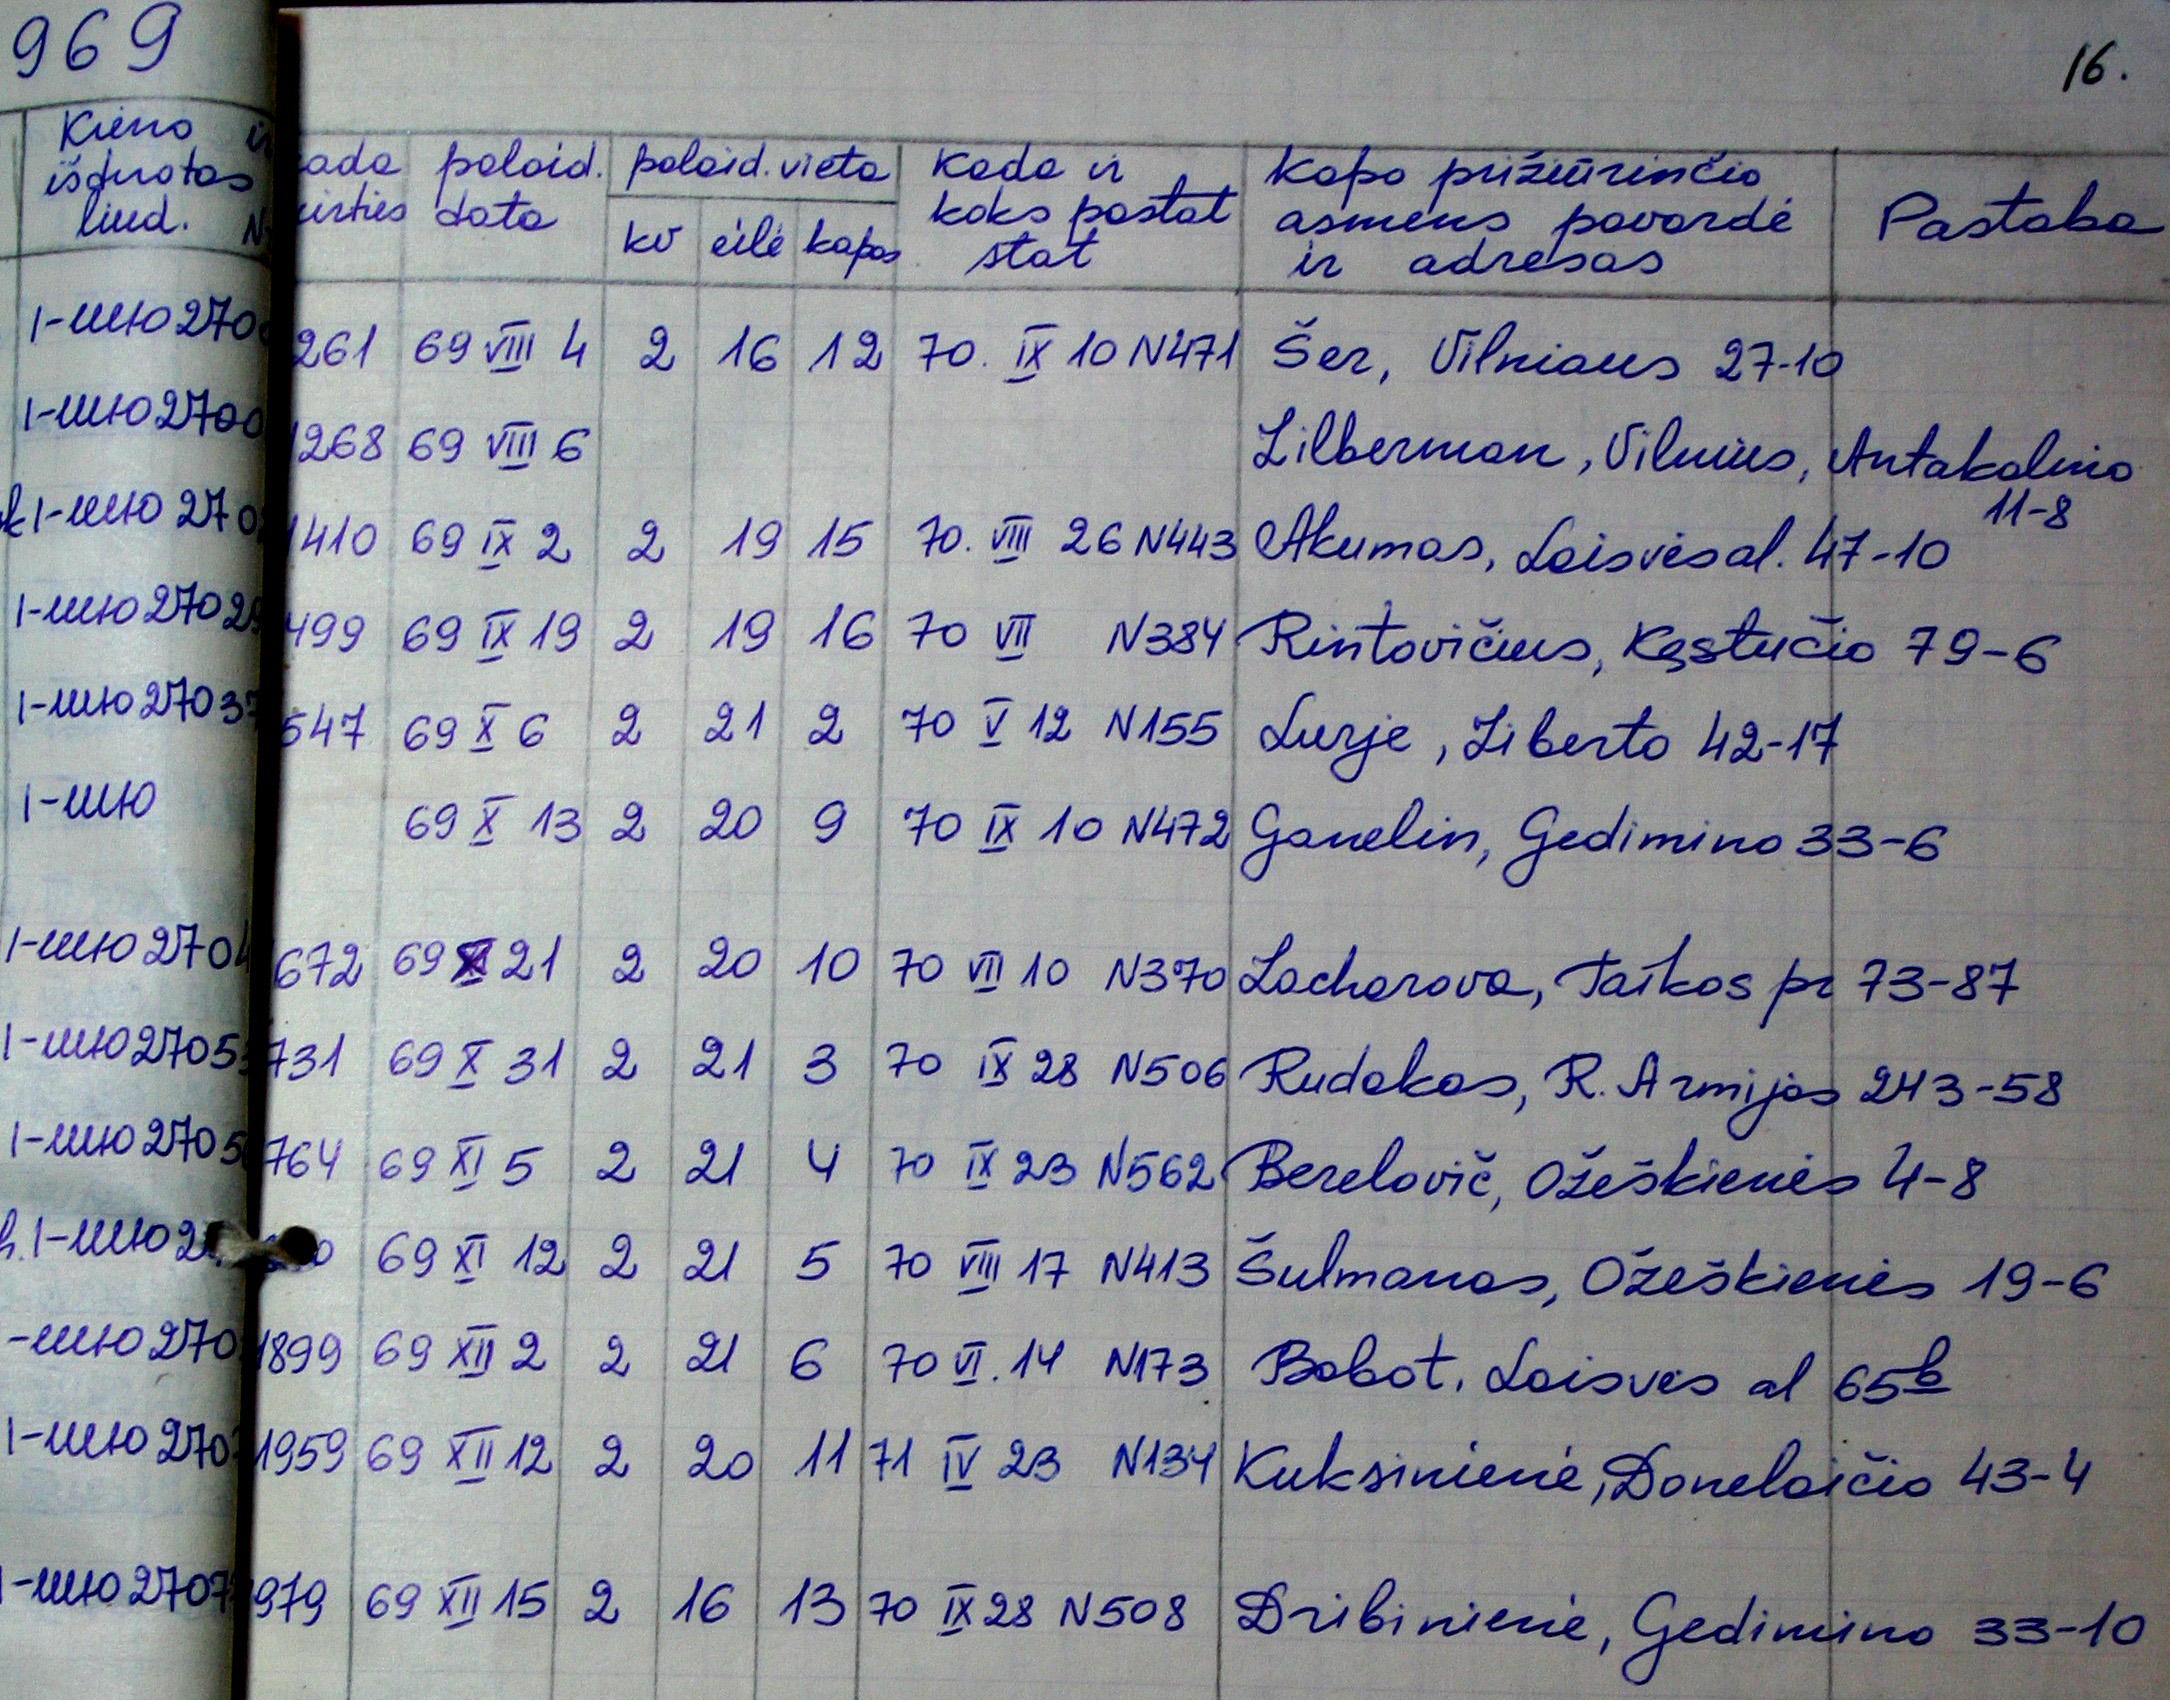 969
16.
Kieno
išduotas
liud.
palaid. data
palaid. vieta
kv eilė kapas
Kada ir koks pastat stat
kapo prižiūrinčio asmens pavardė ir adresas
Pastaba
I-ШЮ 270 261 69 VIII 4 2 16 12 70. IX 10 N471 Šer, Vilniaus 27-10
I-ШЮ 2700 1268 69 VIII 6 Zilberman, Vilnius, Antakalnio 11-8
I-ШЮ 270 1410 69 IX 2 2 19 15 70. VIII 26 N443 Akumas, Laisvės al. 47-10
I-ШЮ 2702 499 69 IX 19 2 19 16 70 VII N384 Rintovičius, Kęstučio 79-6
I-ШЮ 2703 547 69 X 6 2 21 2 70 V 12 N155 Lurje, Ziberto 42-17
I-ШЮ 69 X 13 2 20 9 70 IX 10 N472 Ganelin, Gedimino 33-6
I-ШЮ 2704 672 69 21 2 20 10 70 VII 10 N370 Zacharova, Taikos pr 73-87
I-ШЮ 2705 731 69 X 31 2 21 3 70 IX 28 N506 Rudakas, R. Armijos 243-58
I-ШЮ 2705 764 69 XI 5 2 21 4 70 IX 23 N562 Berelovič, Ožeškienės 4-8
I-ШЮ 69 XI 12 2 21 5 70 VIII 17 N413 Šulmanas, Ožeškienės 19-6
-ШЮ 270 1899 69 XII 2 2 21 6 70 VI. 14 N173 Babot. Laisvės al 65b
I-ШЮ 270 1959 69 XII 12 2 20 11 71 IV 23 N134 Kuksinienė, Donelaičio 43-4
-ШЮ 2707 979 69 XII 15 2 16 13 70 IX 28 N508 Dribinienė, Gedimino 33-10